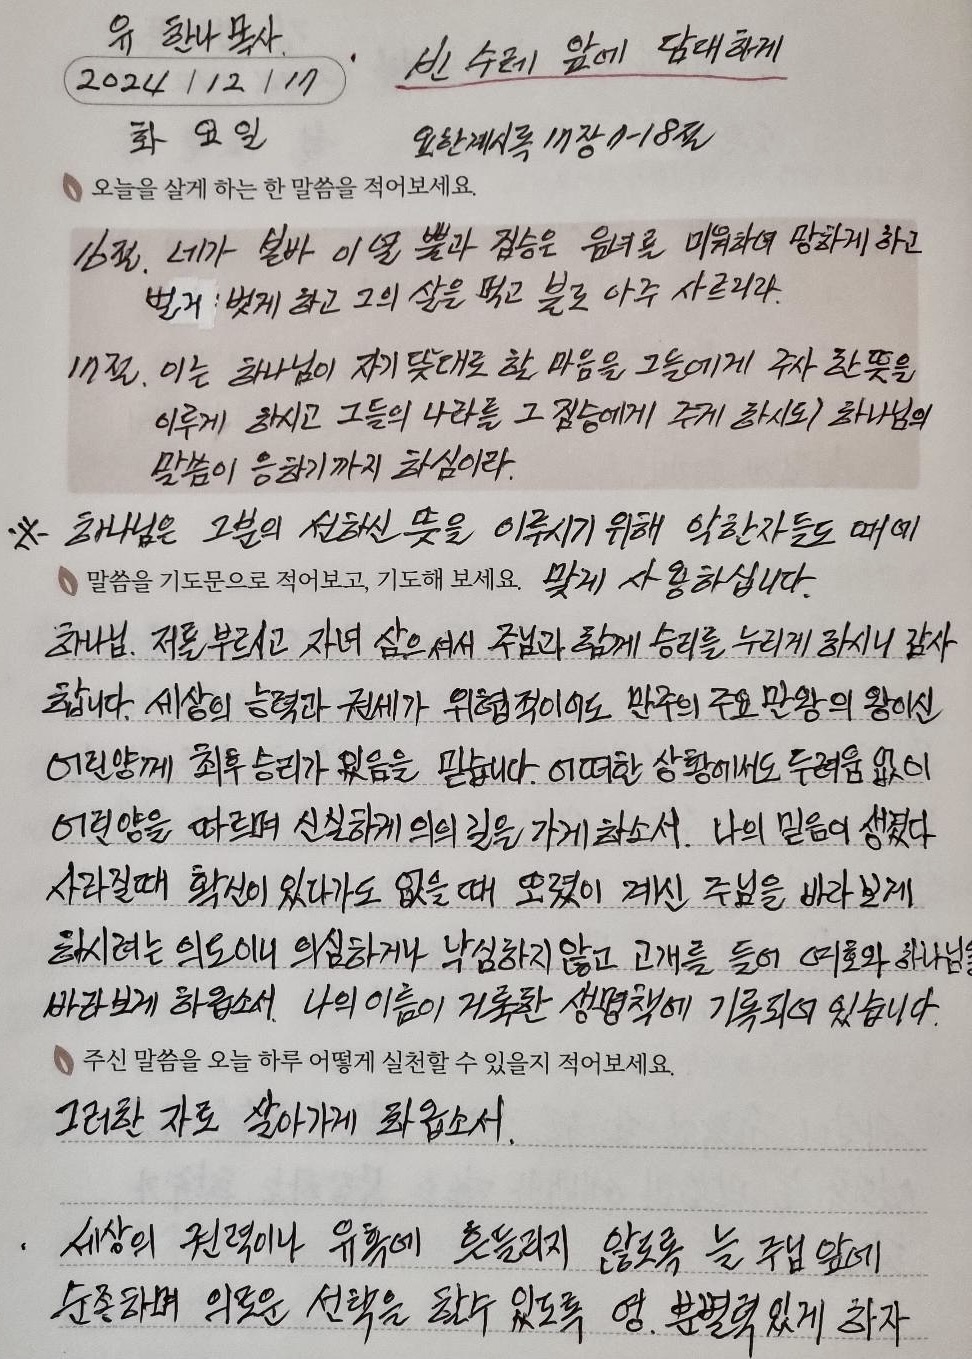 유 한나 목사.
2024 / 12 / 17
빈 수레 앞에 담대하게
화 요일
요한계시록 17장 7-18절
오늘을 살게 하는 한 말씀을 적어보세요.
16절. 네가 본바 이 열 뿔과 짐승은 음녀를 미워하여 망하게 하고
벌거벗게 하고 그의 살을 먹고 불로 아주 사르리라.
17절. 이는 하나님이 자기 뜻대로 할 마음을 그들에게 주사 한 뜻을
이루게 하시고 그들의 나라를 그 짐승에게 주게 하시되 하나님의
말씀이 응하기까지 하심이라.
※- 하나님은 그분의 선하신 뜻을 이루시기 위해 악한자들도 때에
말씀을 기도문으로 적어보고, 기도해 보세요. 맞게 사용하십니다.
하나님. 저를 부르시고 자녀 삼으셔서 주님과 함께 승리를 누리게 하시니 감사
합니다. 세상의 능력과 권세가 위협적이어도 만주의 주요 만왕의 왕이신
어린양께 최후 승리가 있음을 믿습니다. 어떠한 상황에서도 두려움 없이
어린양을 따르며 신실하게 의의 길을 가게 하소서. 나의 믿음이 생겼다
사라질때 확신이 있다가도 없을 때 오직 계신 주님을 바라보게
하시려는 의도이니 의심하거나 낙심하지 않고 고개를 들어 여호와 하나님을
바라보게 하옵소서. 나의 이름이 거룩한 생명책에 기록되어 있습니다.
주신 말씀을 오늘 하루 어떻게 실천할 수 있을지 적어보세요.
그러한 자로 살아가게 하옵소서.
· 세상의 권력이나 유혹에 흔들리지 않도록 늘 주님 앞에
순종하며 의로운 선택을 할수 있도록 영. 분별력 있게 하자